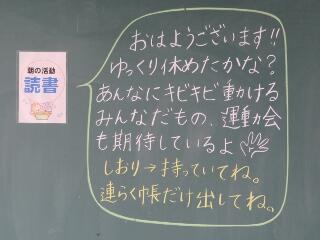 朝の活動
読書
おはようございます!!
ゆっくり休めたかな?
あんなにキビキビ動ける
みんなだもの、運動会
も期待しているよ
しおり→持っていてね。
連らく帳だけ出してね。